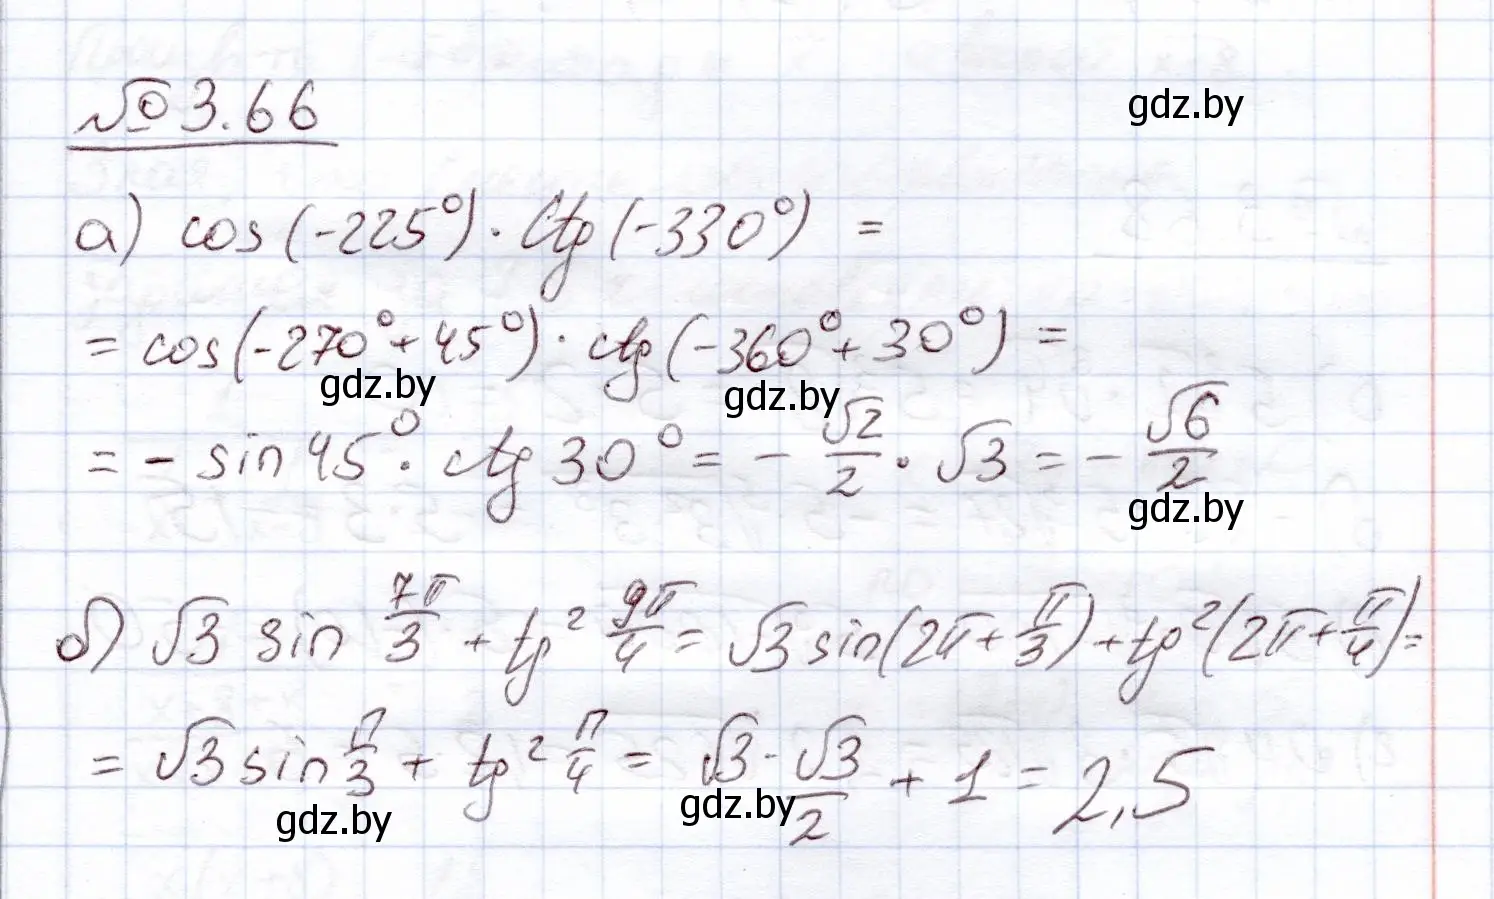 № 3.66
gdz.by
а) cos(-225°) · ctg(-330°) =
= cos(-270° + 45°) · ctg(-360° + 30°) =
gdz.by
gdz.by
= - sin 45° · ctg 30° = - √2/2 · √3 = - √6/2
gdz.by
б) √3 sin 7π/3 + tg² 9π/4 = √3 sin(2π + π/3) + tg²(2π + π/4) =
= √3 sin π/3 + tg² π/4 = √3 · √3/2 + 1 = 2,5
gdz.by
gdz.by